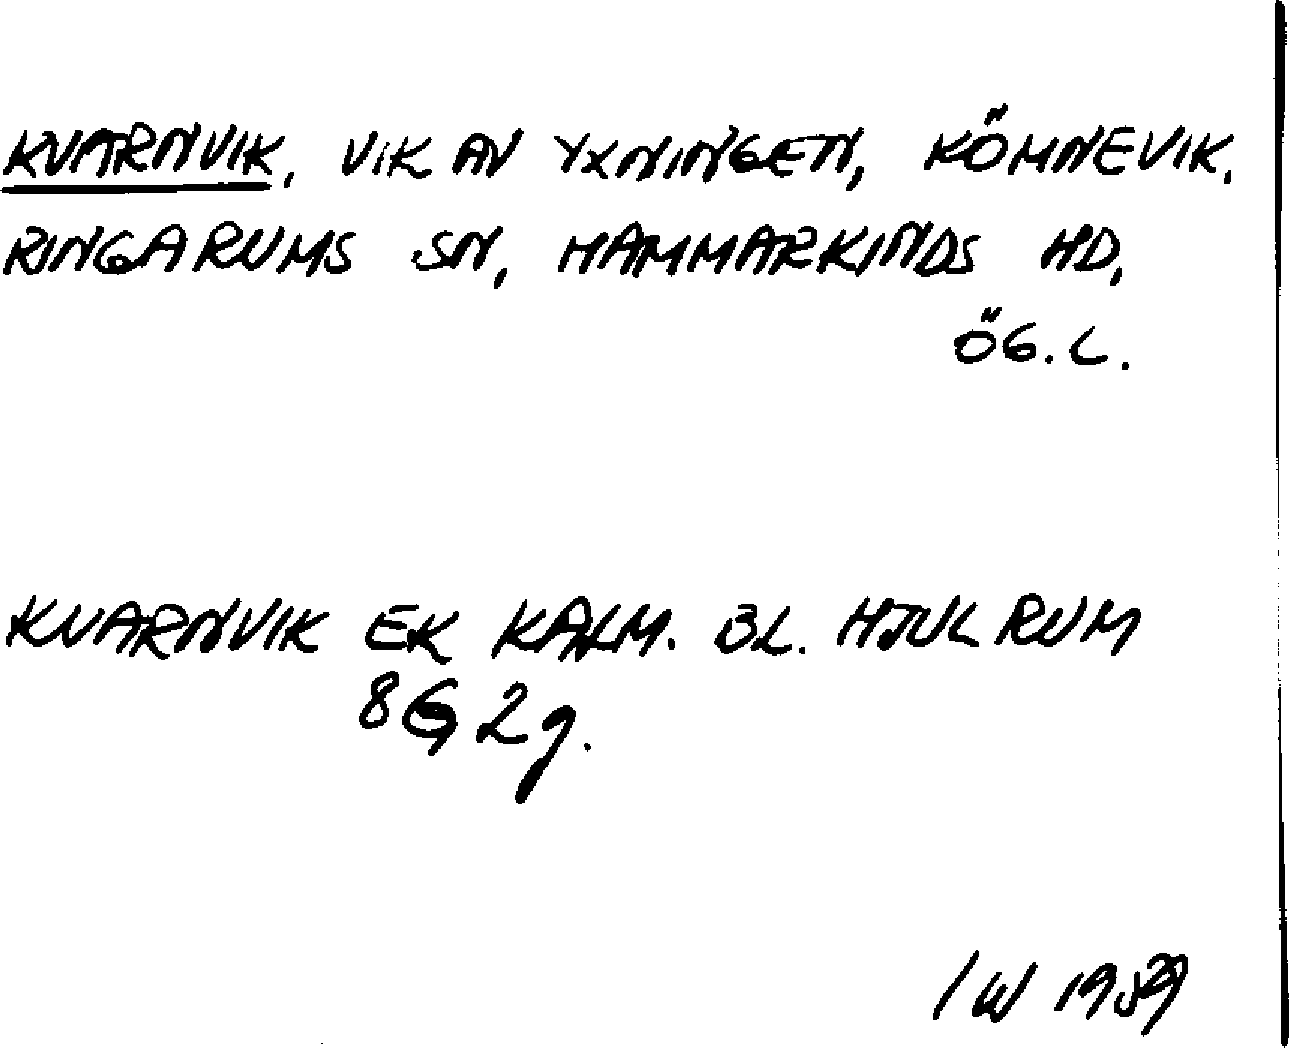 KVARNVIK, VIK AV YXNINGEN, KÖMNEVIK,
RINGARUMS SN, HAMMARKINDS HD,
ÖG.L.
KVARNVIK EK KALM. BL. HJULRUM
8G 2g.
IW 1959